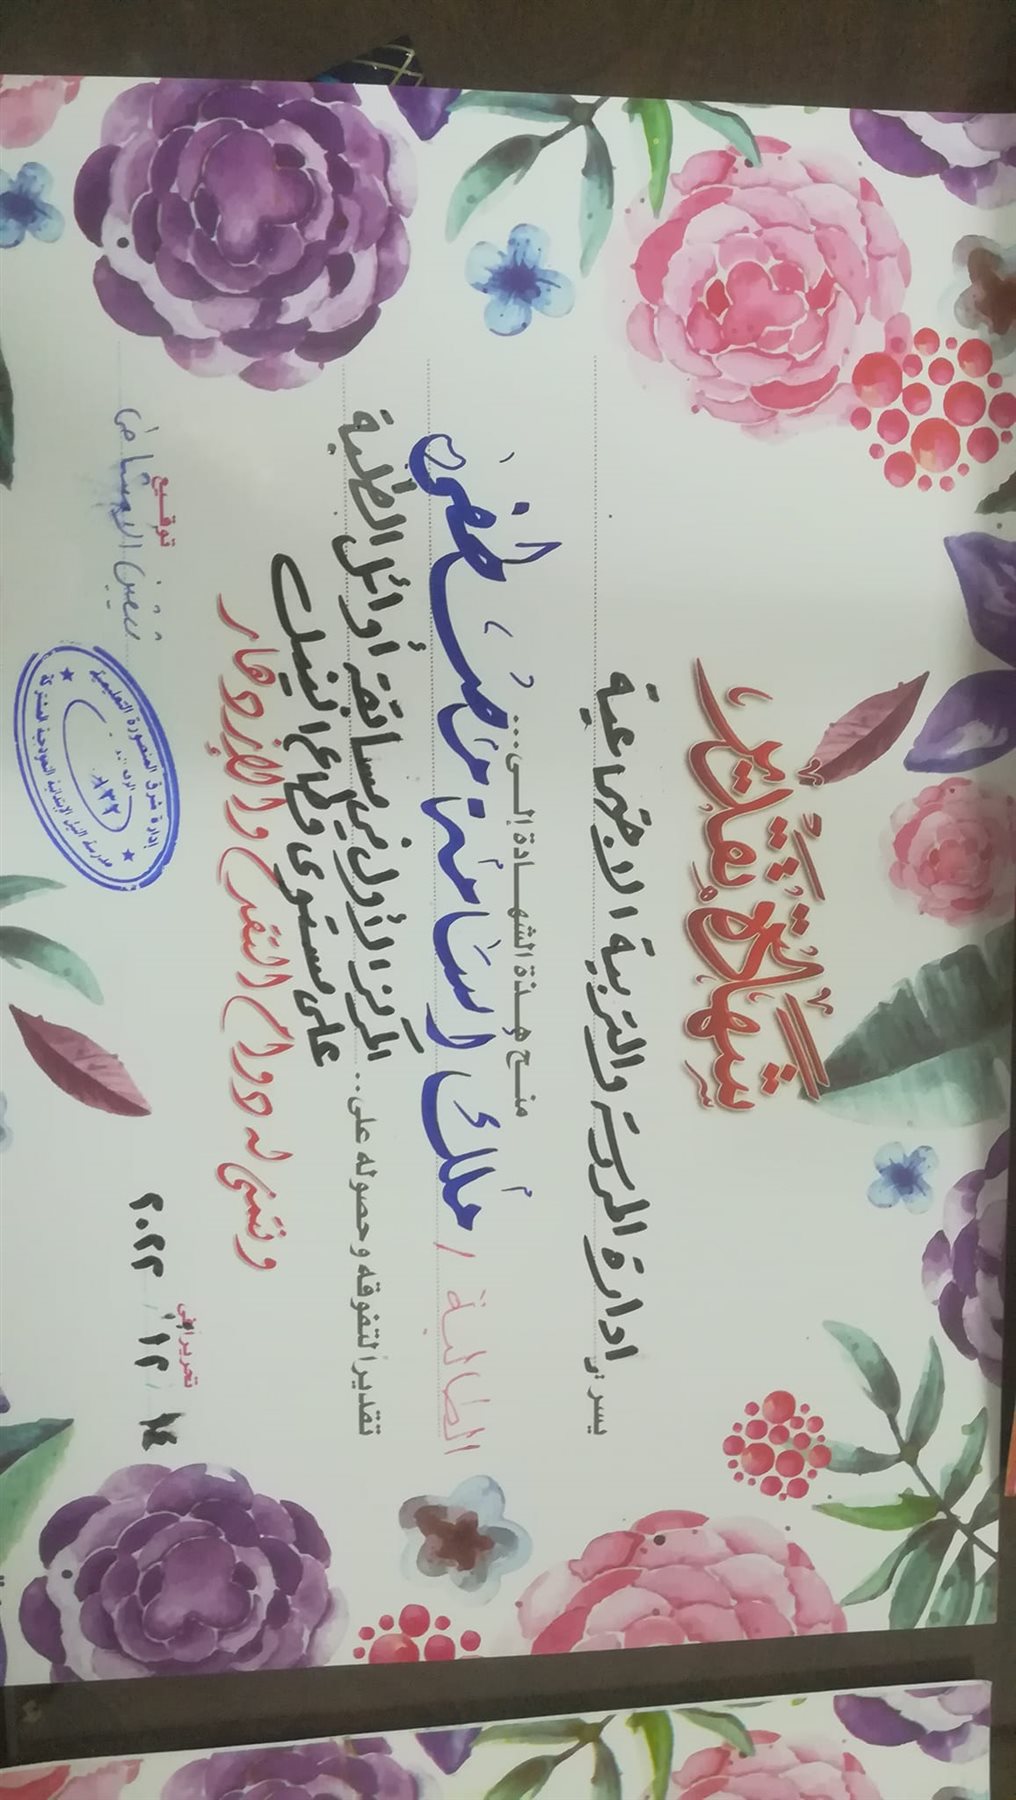 شهادة تقدير
يسر إدارة المدرسة والتربية الاجتماعية
منح هذة الشهادة إلى...
الطالبة / ملك أسامة مصطفى
تقديراً لتفوقه وحصوله على... المركز الأول في مسابقة أوائل الطلبة
على مستوى قطاع النيل
ونتمنى له دوام التقدم والازدهار
تحريراً فى
٢٠٢٢/١٢/١٤
توقيع
إدارة شرق المنصورة التعليمية
مدرسة النيل الابتدائية النموذجية المشتركة